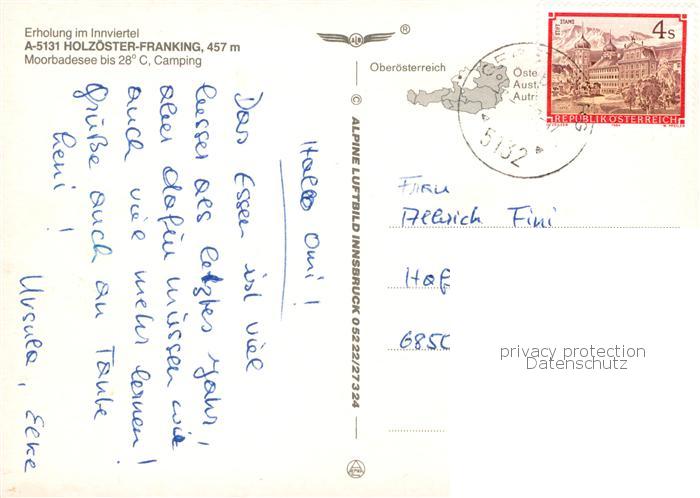 Erholung im Innviertel
A-5131 HOLZÖSTER-FRANKING, 457 m
Moorbadesee bis 28° C, Camping
®
Oberösterreich
© ALPINE LUFTBILD INNSBRUCK 05222/27324
STIFT STAMS
4s
REPUBLIK ÖSTERREICH
1984
5132
Hallo Omi!
Das Essen ist viel
besser als letztes Jahr,
aber dafür müssen wir
auch viel mehr lernen!
Grüße auch an Tante
heni!
Ursula,
Frau
Fini
6850
privacy protection
Datenschutz